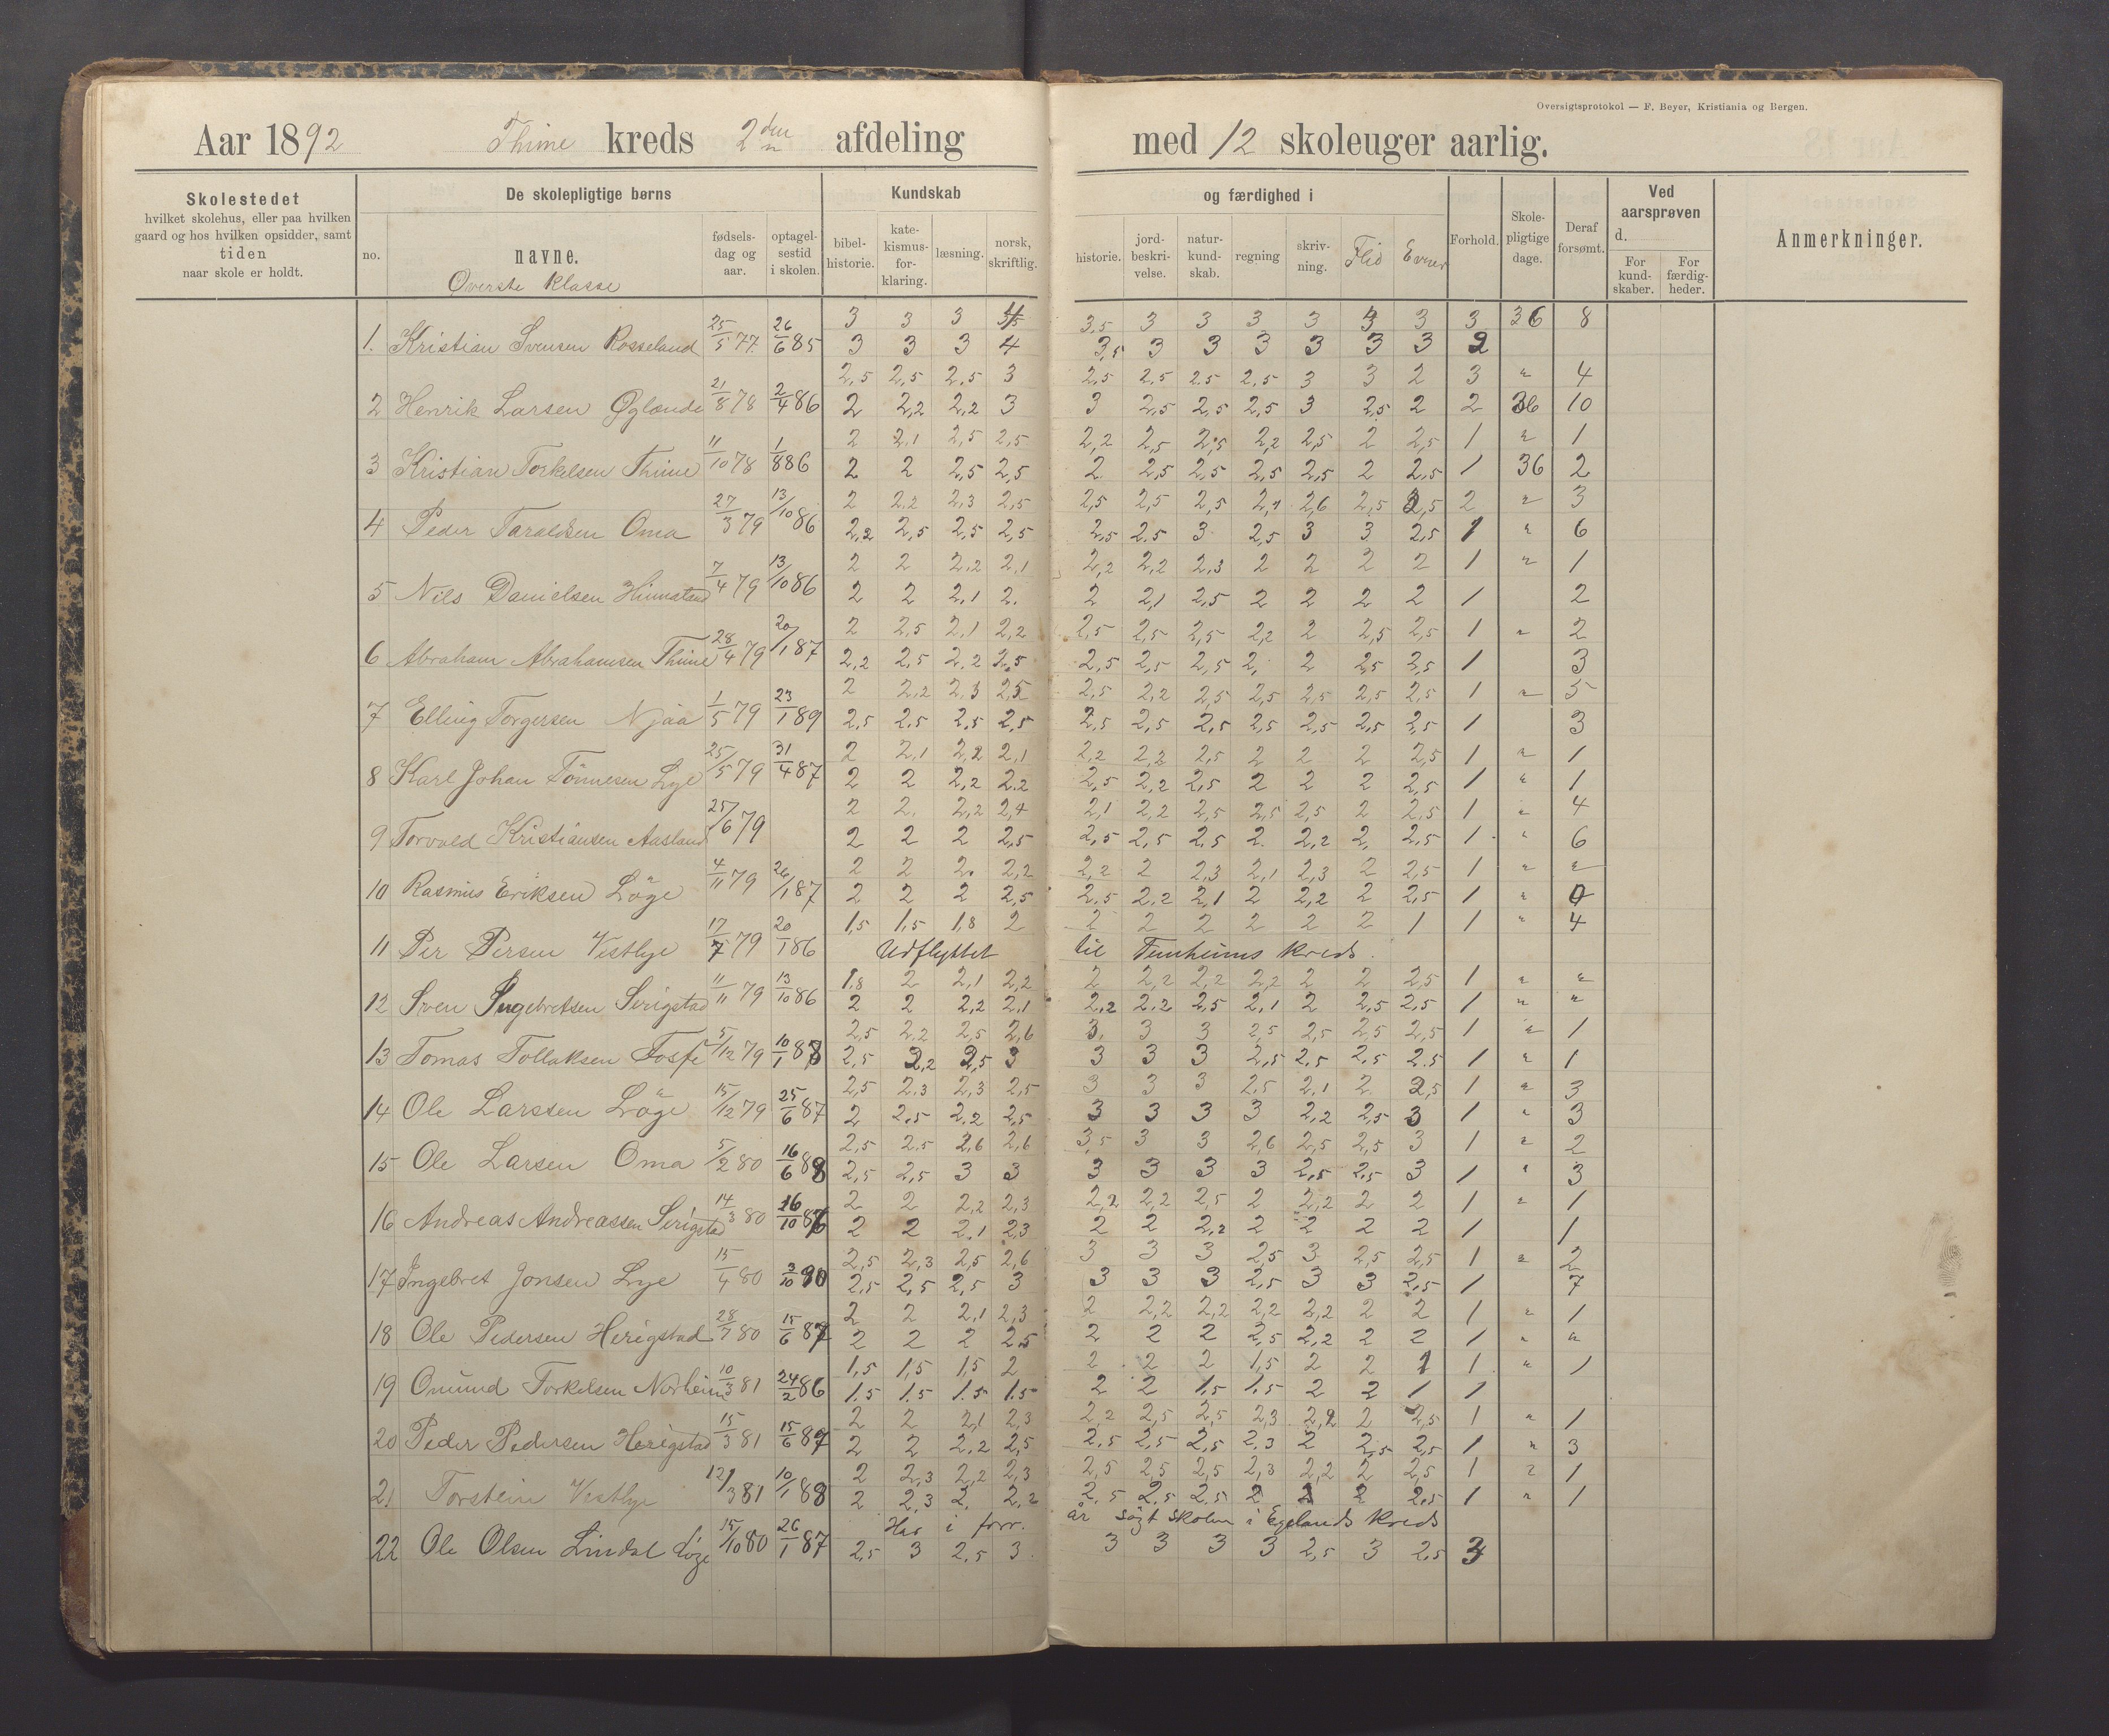 Oversigtsprotokol — F. Beyer, Kristiania og Bergen.
Aar 1892 Thime kreds 2den afdeling med 12 skoleuger aarlig.
Skolestedet
hvilket skolehus, eller paa hvilken
gaard og hos hvilken opsidder, samt
tiden
naar skole er holdt.
De skolepligtige børns
no.
navne.
Øverste Klasse
fødsels-
dag og
aar.
optagel-
sestid
i skolen.
Kundskab og færdighed i
bibel-
historie.
kate-
kismus-
for-
klaring.
læsning.
norsk,
skriftlig.
historie.
jord-
beskri-
velse.
natur-
kund-
skab.
regning
skriv-
ning.
Flid
Evner
Forhold.
Skole-
pligtige
dage.
Deraf
forsømt.
Ved
aarsprøven
d.
For
kund-
skaber.
For
færdig-
heder.
Anmerkninger.
3 3 3 3,5 3 3 3 3 3 3 3 36 8
1. Kristian Svensen Rosseland 25/5 77. 26/6 85 3 3 3 4 3,5 3 3 3 3 3 3 2
2,5 2,5 2,5 3 2,5 2,5 2,5 2,5 3 3 2 3 " 4
2 Henrik Larsen Øglænde 21/8 78 2/4 86 2 2,2 2,2 3 3 2,5 2,5 2,5 3 2,5 2 2 36 10
2 2,1 2,5 2,5 2,2 2,5 2,5 2,2 2,5 2 2,5 1 " 1
3 Kristian Torkelsen Thime 11/10 78 1/8 86 2 2 2,5 2,5 2 2,5 2,5 2,5 2,5 2 2,5 1 36 2
2 2,2 2,3 2,5 2,5 2,5 2,5 2,6 2,5 2,5 2 " 3
4 Peder Taraldsen Oma 27/3 79 13/10 86 2,2 2,5 2,5 2,5 2,5 2,5 3 2,5 3 3 2,5 1 " 6
2 2 2,2 2,1 2,2 2,2 2,3 2 2 2 2 1 " 1
5 Nils Danielsen Hinnaland 7/4 79 13/10 86 2 2 2,1 2. 2 2,1 2,5 2 2 2 2 1 2
2 2,5 2,1 2,2 2,5 2,5 2,5 2,2 2 2,5 2,5 1 " 2
6 Abraham Abrahamsen Thime 28/4 79 20/1 87 2,2 2,5 2,2 2,5 2,5 2,5 2,5 2, 2 2,5 2,5 1 3
2 2,2 2,3 2,5 2,5 2,2 2,5 2,5 2,5 2,5 2,5 1 " 5
7 Elling Torgersen Njaa 1/5 79 23/1 89 2,5 2,5 2,5 2,5 2,5 2,5 2,5 2,5 2,5 2,5 2,5 1 3
2 2,1 2,2 2,1 2,2 2,2 2,5 2 2 2 2,5 1 " 1
8 Karl Johan Tönnesen Lye 25/5 79 31/4 87 2 2 2,2 2,2 2,5 2,2 2,5 2 2 2 2,5 1 " 1
2 2. 2,2 2,4 2,1 2,2 2,5 2,5 2,5 2 2,5 1 " 4
9 Torvald Kristiansen Aasland 25/6 79 2 2 2 2,5 2,5 2,5 2,5 2. 2,2 2, 2,5 1 " 6
2 2 2. 2,2 2,2 2 2,3 2,1 2,3 2 2,5 1 " "
10 Rasmus Eriksen Löge 4/11 79 26/1 87 2 2 2 2,5 2,5 2,2 2,1 2 2,2 2 2,5 1 " 0
1,5 1,5 1,8 2 2 2 2 2 2 2 1 1 " 4
11 Per Persen Vestlye 17/7 79 20/1 86 Udflyttet til kreds.
1,8 2 2,1 2,2 2 2,2 2,2 2,2 2 2 2,5 1 " "
12 Sven Ingebretsen Serigstad 11/11 79 13/10 86 2 2 2,2 2,1 2,2 2,2 2,5 2,1 2 2,5 2,5 1 " "
2,5 2,2 2,5 2,6 3, 3 3 2,5 2,5 2,5 2,5 1 " 1
13 Tomas Tollaksen Fosse 5/12 79 10/1 88 2,5 2,2 2,5 3 3 3 3 2,5 2,5 2,5 2,5 1 " 1
2,5 2,3 2,3 2,5 3 3 3 2,5 2,1 2 2,5 1 " 3
14 Ole Larsen Löge 15/12 79 25/6 87 2 2,5 2,2 2,5 3 3 3 3 2,2 2,5 3 1 " 3
2,5 2,5 2,6 2,6 3,5 3 3 2,6 2,5 2,5 3 1 " 2
15 Ole Larsen Oma 5/2 80 16/6 88 2,5 2,5 3 3 3 3 3 3 2,5 2,5 3 1 " 3
2 2 2,2 2,3 2,2 2,2 2,5 2 2,2 2 2 1 " 1
16 Andreas Andreassen Serigstad 14/3 80 16/10 86 2 2 2,1 2,3 2 2 2,2 2 2 2 2 1 1
2,5 2,3 2,5 2,6 3 3 3 2,5 3 2,5 2,5 1 " 2
17 Ingebret Jonsen Lye 15/4 80 3/10 90 2,5 2,5 2,5 3 3 3 3 2,5 3 3 2,5 1 7
2 2 2,1 2,3 2 2,2 2,2 2,2 2,2 2 2 1 " 1
18 Ole Pedersen Herigstad 28/7 80 15/6 87 2 2 2 2,5 2 2 2 2,5 2,2 2 2 1 " "
1,5 1,5 1,5 2 2 2 2 1,5 2 2 1 1 " 1
19 Omund Torkelsen Norheim 10/3 81 24/2 86 1.5 1.5 1.5 1.5 2 2 1,5 1,5 2 2 1 1
2 2 2,1 2,3 2,2 2,5 2,5 2,3 2,2 2 2,5 1 " 1
20 Peder Pedersen Herigstad 15/3 81 15/6 87 2 2 2,2 2,5 2,5 2,5 2,5 2,3 2 2,5 2,5 1 " 3
2 2,3 2,2 2,3 2,5 2,5 2,5 2,3 2,2 2 2,5 1 " 1
21 Torstein Vestlye 12/3 81 10/1 88 2 2,3 2, 2,2 2,5 2,5 2,5 2 2 2 2,5 1 " 1
Har i forr. år søgt skolen i Egelands kreds
22 Ole Olsen Lindal Löge 15/10 80 26/1 87 2,5 3 2,5 3 3 3 3 3 2,5 3 2,5 3